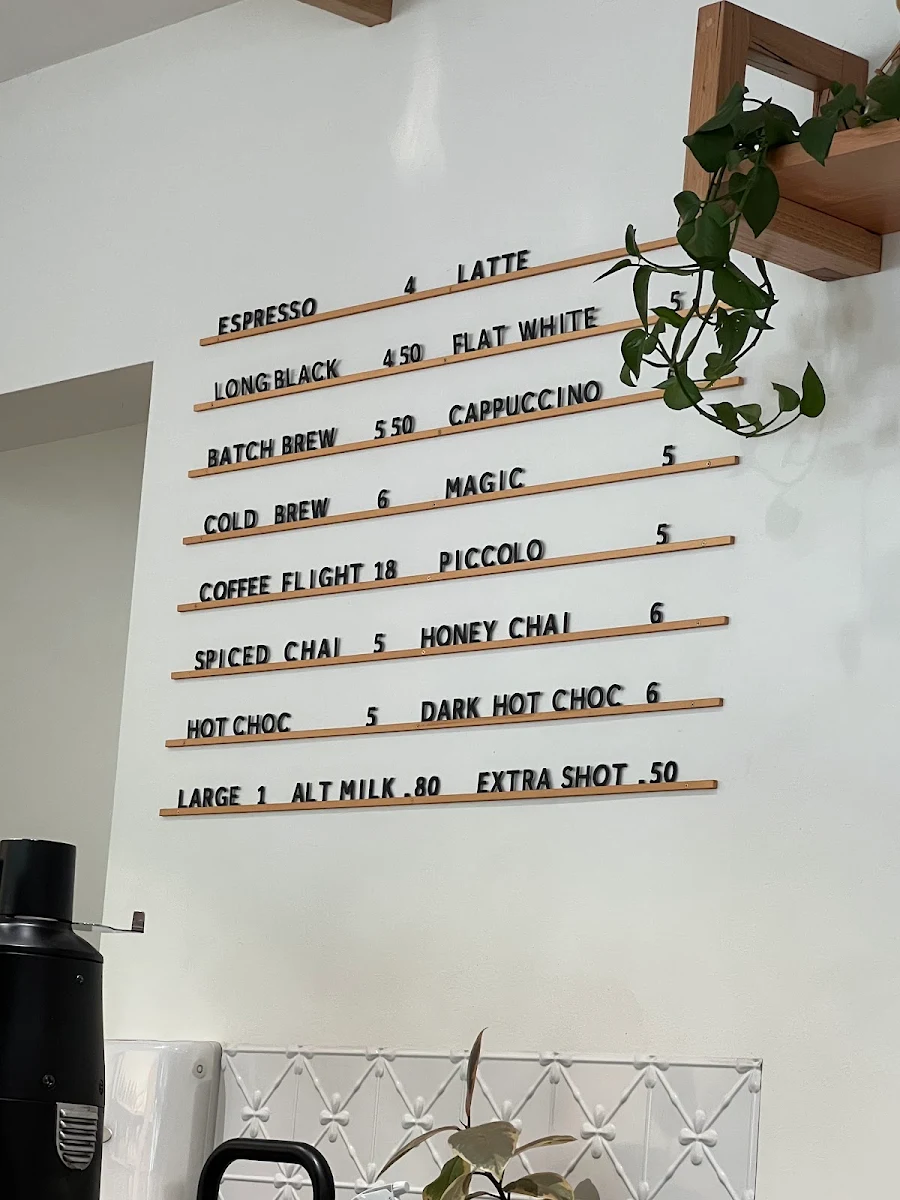 ESPRESSO 4 LATTE
LONG BLACK 4 50 FLAT WHITE 5
BATCH BREW 5 50 CAPPUCCINO
COLD BREW 6 MAGIC 5
COFFEE FLIGHT 18 PICCOLO 5
SPICED CHAI 5 HONEY CHAI 6
HOT CHOC 5 DARK HOT CHOC 6
LARGE 1 ALT MILK .80 EXTRA SHOT .50